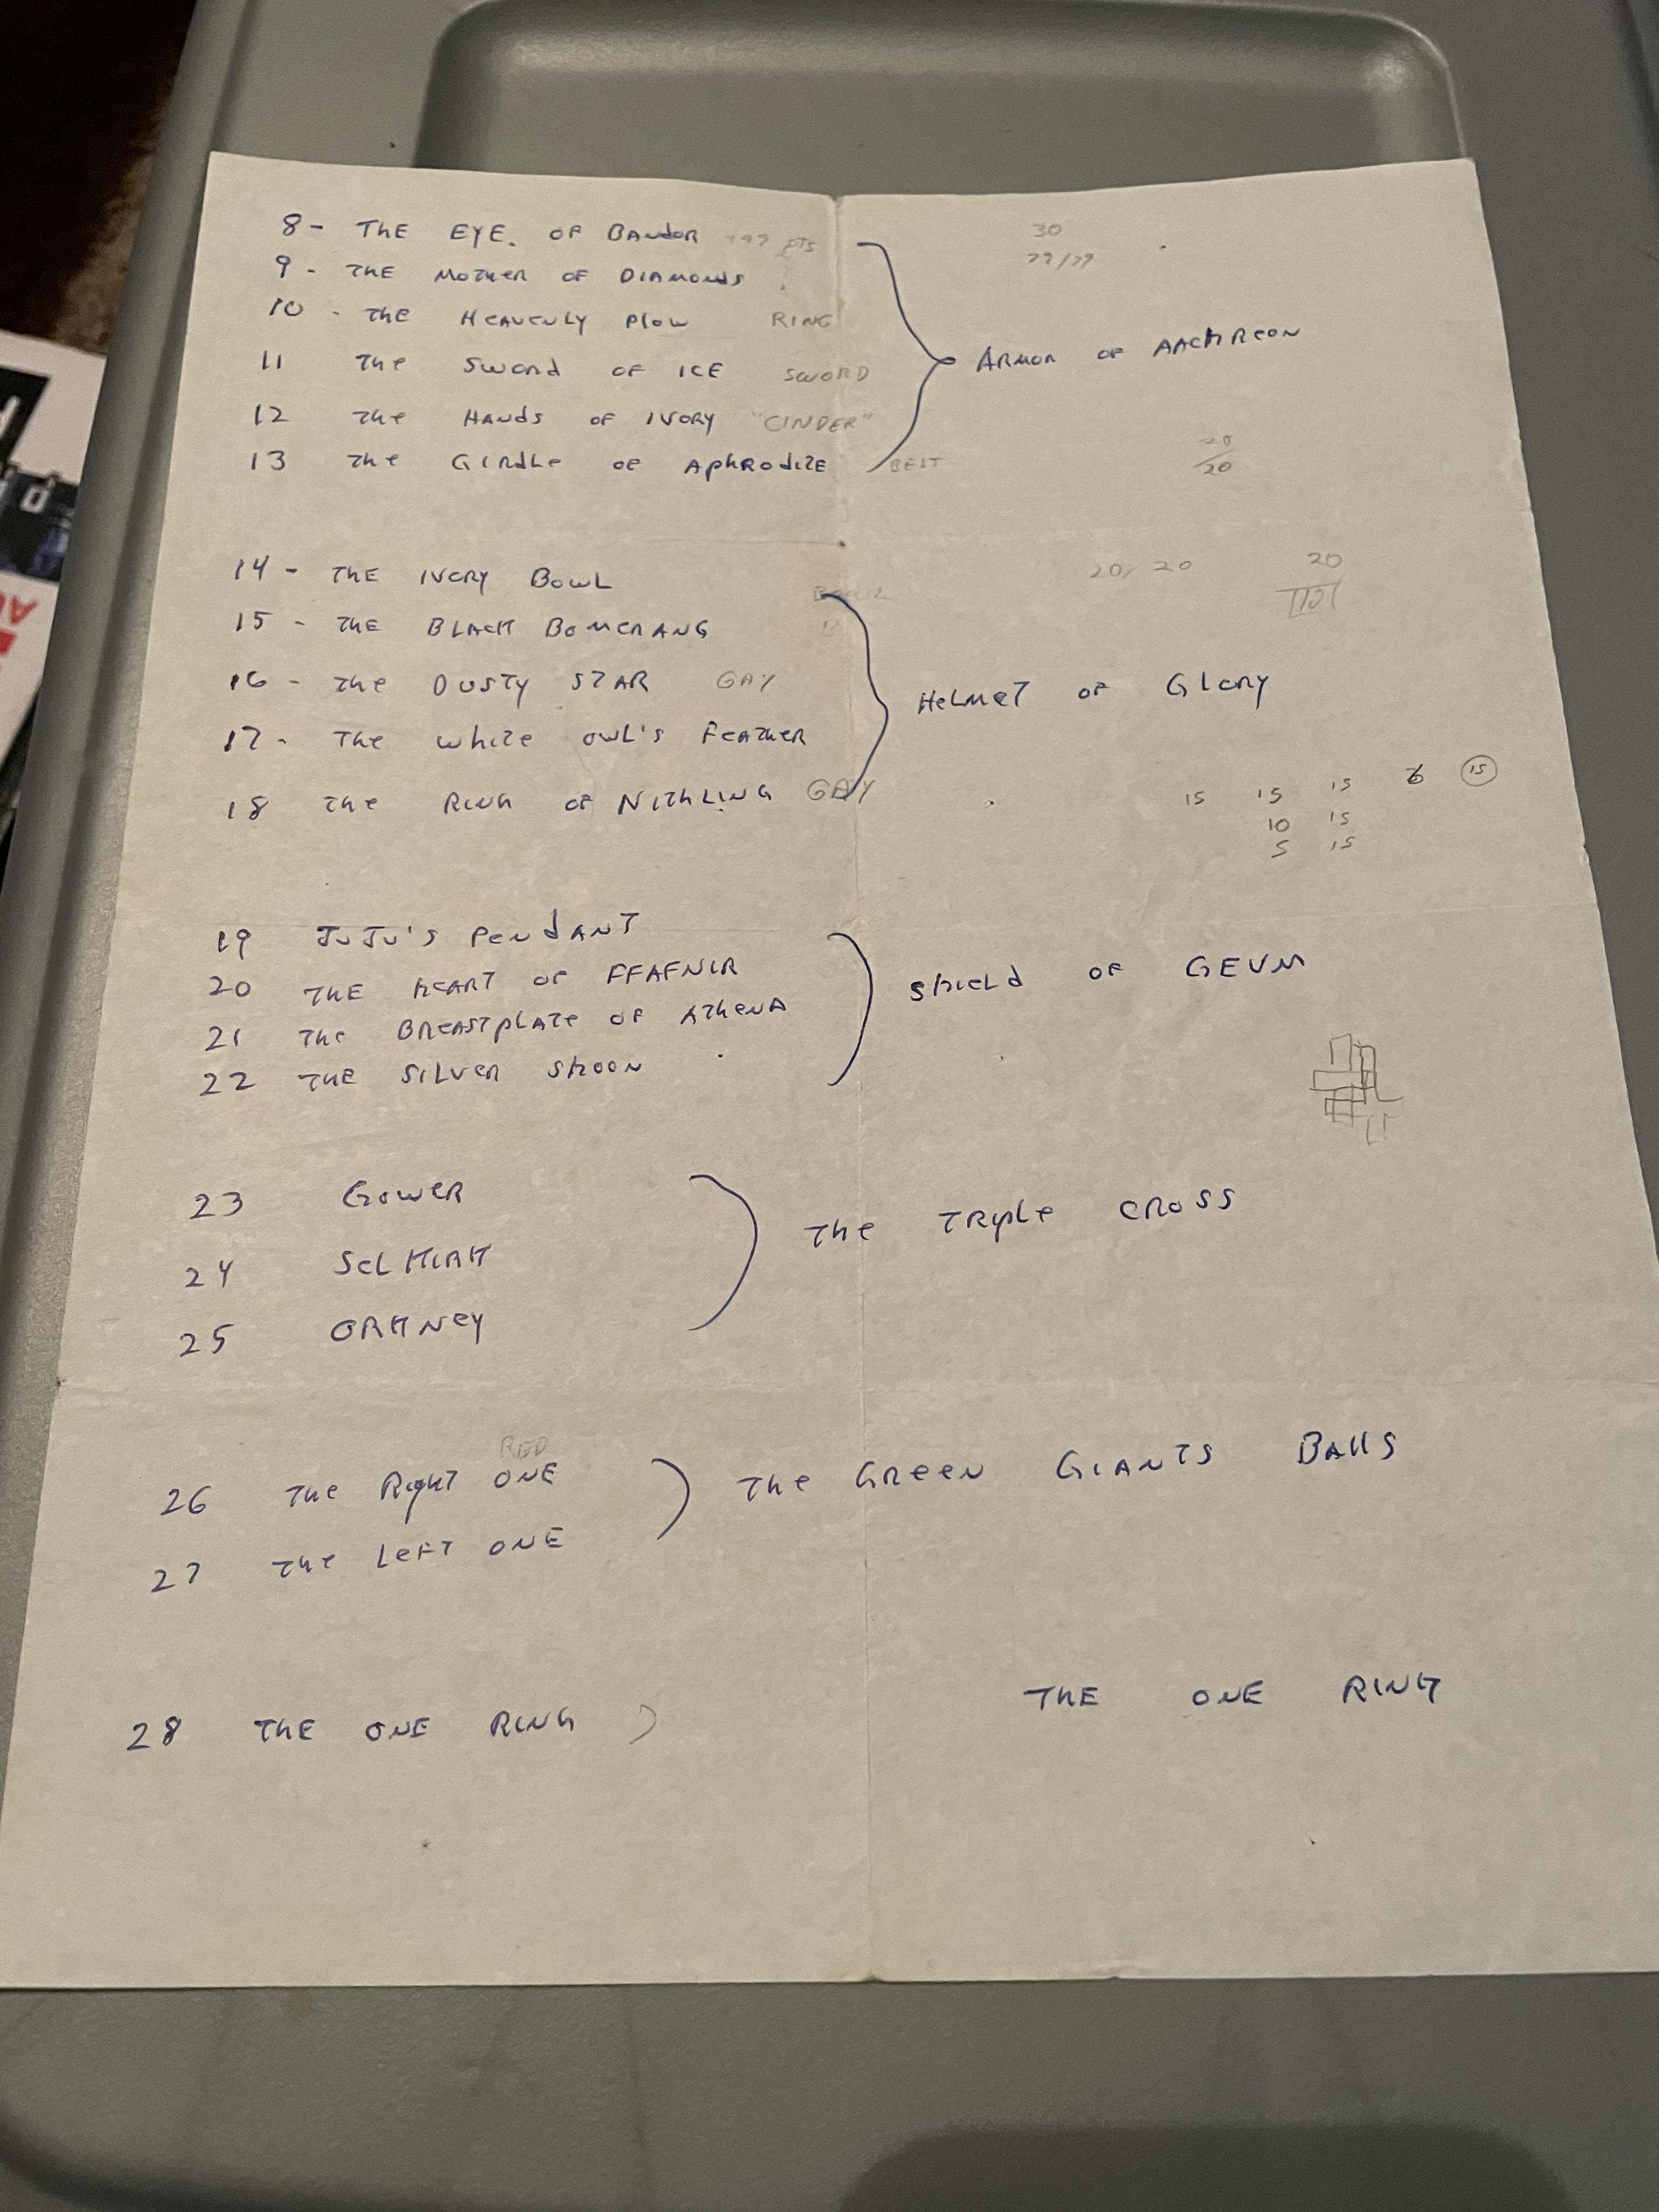 30
8 - THE EYE. OF BANDOR PTS
9 - THE MOTHER OF DIAMONDS
10 - THE HEAVENLY PLOW RING
11 THE SWORD OF ICE SWORD
ARMOR OF
12 THE HANDS OF IVORY "CINDER"
13 THE GIRDLE OF APHRODITE BELT
20
20
14 - THE IVORY BOWL
20/20 20
15 - THE BLACK BOMERANG
16 - THE DUSTY STAR GAY
HELMET OF GLORY
17 - THE WHITE OWL'S FEATHER
18 THE RING OF NITHLING GAY
15 15 15 6 15
10 15
5 15
19 JUJU'S PENDANT
20 THE HEART OF FFAFNIR
SHIELD OF GEVM
21 THE BREASTPLATE OF ATHENA
22 THE SILVER SHOON
23 GOWER
THE TRIPLE CROSS
24 SELKIRK
25 ORKNEY
RED
26 THE RIGHT ONE
THE GREEN GIANTS BALLS
27 THE LEFT ONE
28 THE ONE RING
THE ONE RING